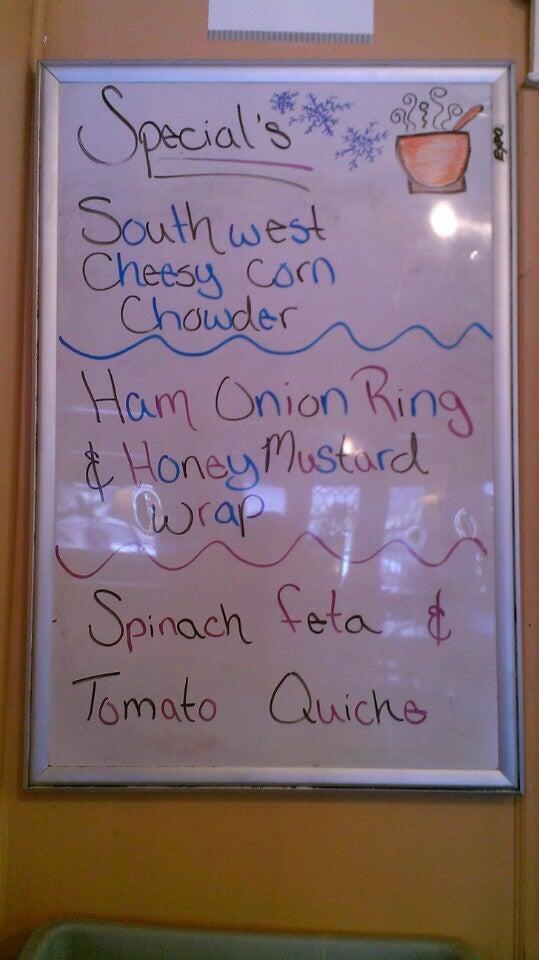 Special's
EXPO
Southwest
Cheesy corn
Chowder
Ham Onion Ring
& Honey Mustard
wrap
Spinach feta &
Tomato Quiche